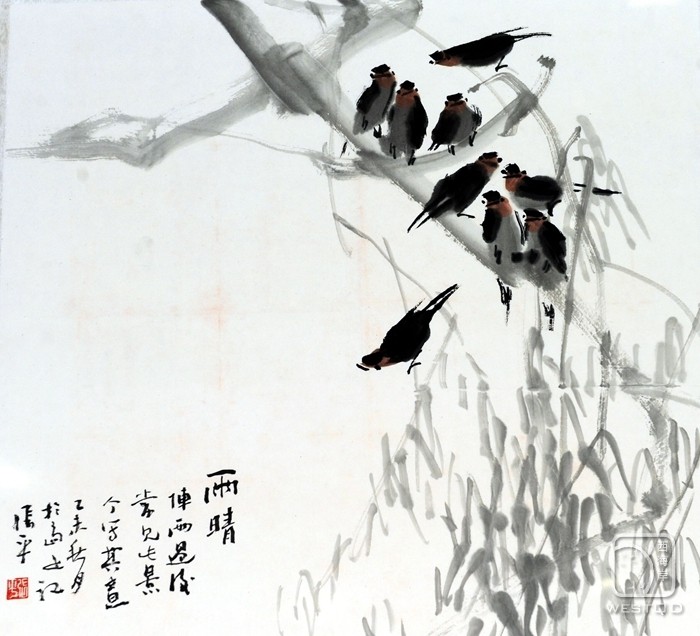 雨晴
陣雨過後
常見此景
今写其意
乙未秋月
張平
WESTQD